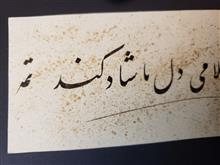 لامی دل ما شاد کند